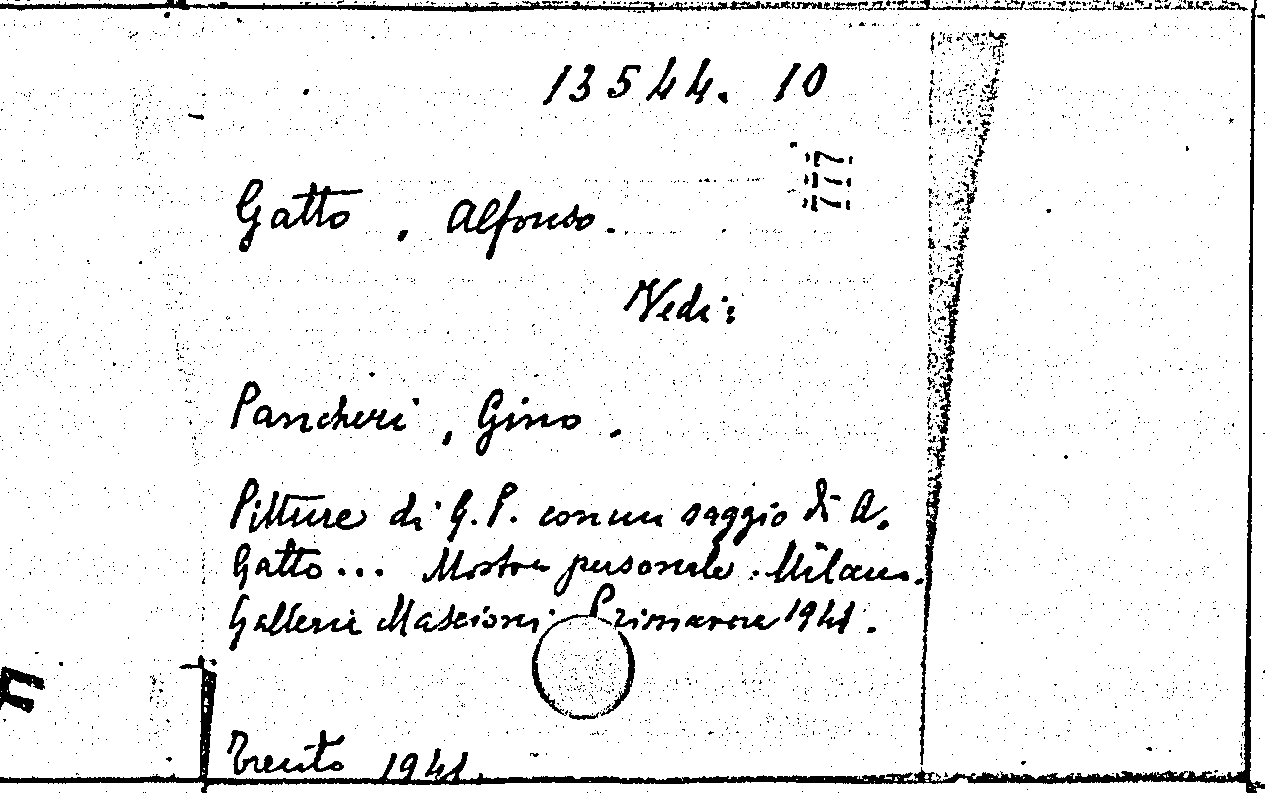 13544. 10
Gatto, Alfonso.
Vedi:
Pancheri, Gino.
Pitture di G. P. con un saggio di A.
Gatto... Mostra personale. Milano.
Galleria Mascioni. Primavera 1941.
Trento 1941.